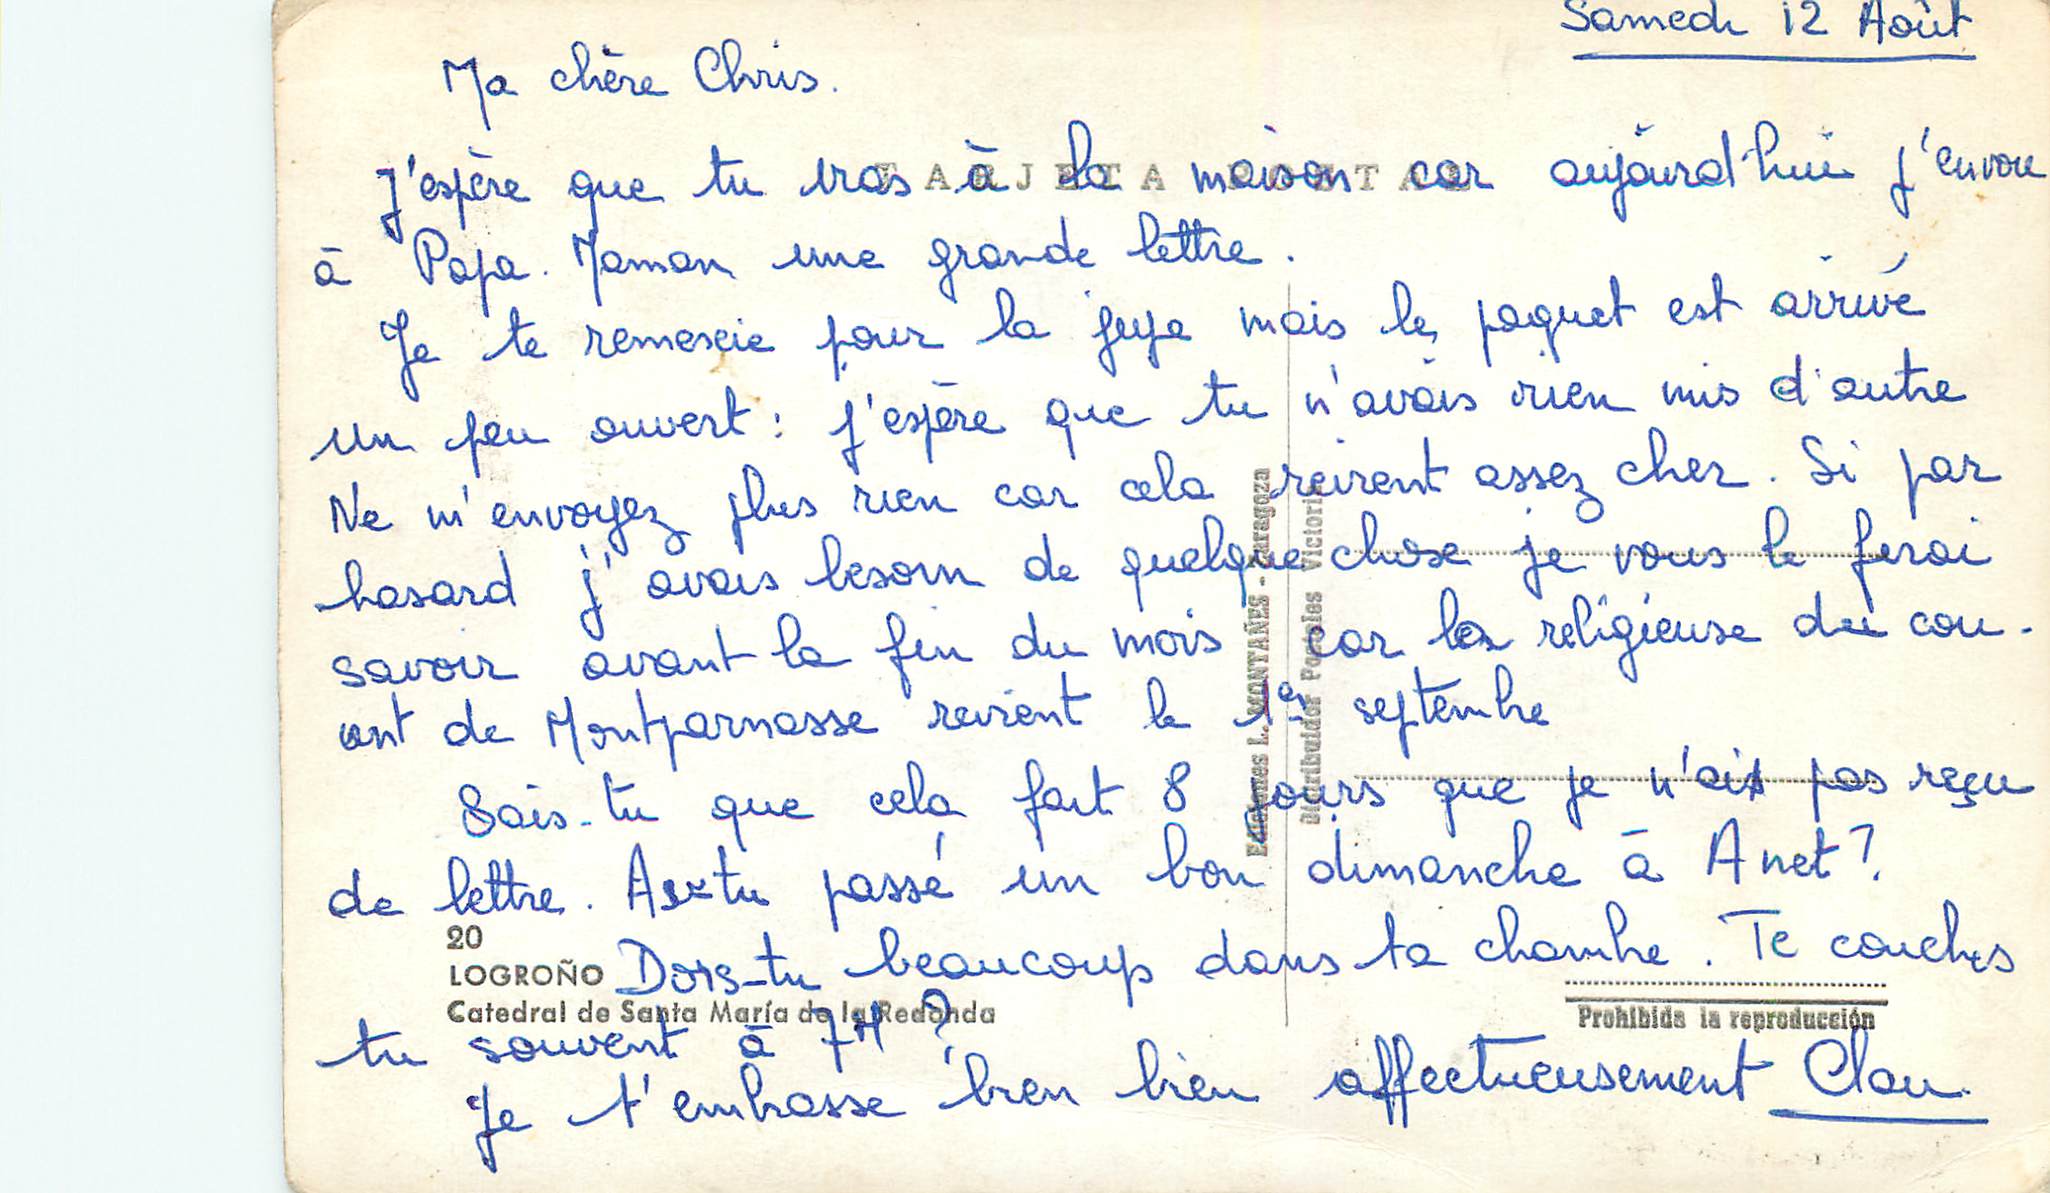 Samedi 12 Août
Ma chère Chris.
TARJETA POSTAL
J'espère que tu iras à la maison car aujourd'hui j'envoie
à Papa. Maman une grande lettre.
Je te remercie pour la jupe mais le paquet est arrivé
un peu ouvert : j'espère que tu n'avais rien mis d'autre
Ne m'envoyez plus rien car cela revient assez cher. Si par
hasard j'avais besoin de quelque chose je vous le ferai
savoir avant la fin du mois car la religieuse du cou-
vent de Montparnasse revient le 1er septembre
Sais-tu que cela fait 8 jours que je n'ai pas reçu
de lettre. As-tu passé un bon dimanche à Anet ?
Dors-tu beaucoup dans ta chambre. Te couches
tu souvent à 7H ?
Je t'embrasse bien bien affectueusement Clau.
20
LOGROÑO
Catedral de Santa María de la Redonda
Ediciones L. MONTAÑES - Zaragoza
Distribuidor Postales Victoria
Prohibida la reproducción